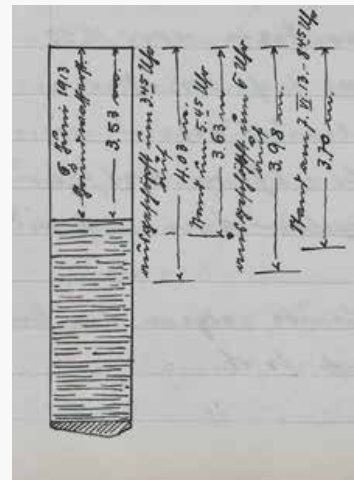 6. Juni 1913
Grundwasserst.
3.53 m.
ausgeschöpft um 3.45 Uhr
auf
4.03 m.
Stand um 5.45 Uhr
3.63 m.
ausgeschöpft um 6 Uhr
auf
3.98 m.
Stand am 7. VI. 13. 8.45 Uhr
3.70 m.